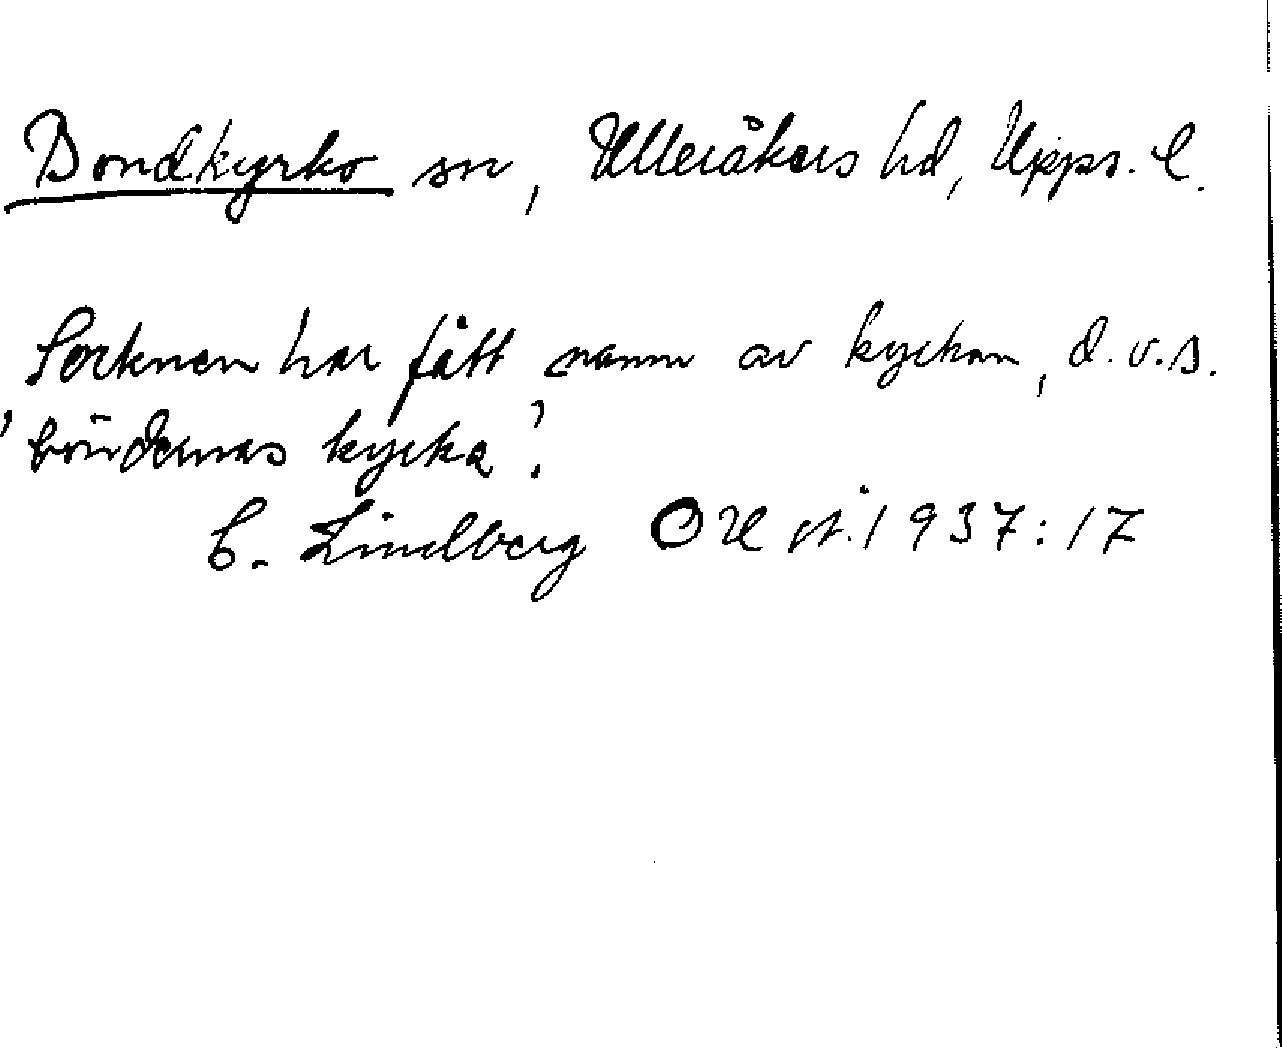 Bondkyrko sn, Ulleråkers hd, Upps. l.
Socknen har fått namn av kyrkan, d.v.s.
'böndernas kyrka'.
C. Lindberg OUÅ 1937:17